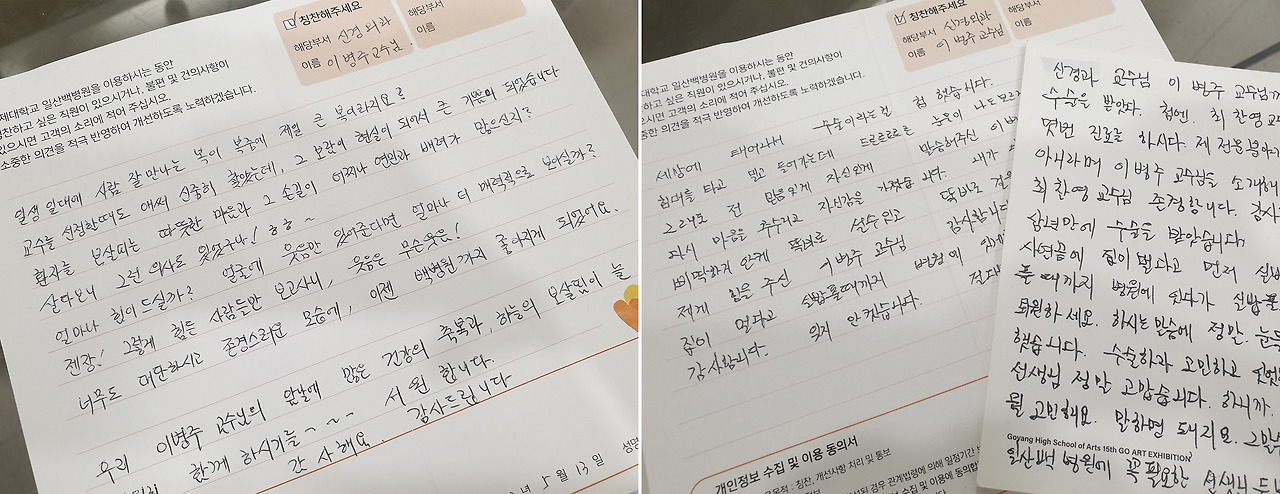 칭찬해주세요
해당부서 신경외과
이름 이병주 교수님
해당부서
이름
제대학교 일산백병원을 이용하시는 동안
하고 싶은 직원이 있으시거나, 불편 및 건의사항이
있으시면 고객의 소리에 적어 주십시오.
소중한 의견을 적극 반영하여 개선하도록 노력하겠습니다.
일생 일대에 사람 잘 만나는 복이 복중에 제일 큰 복이라지요?
교수를 선정할때도 애써 신중히 찾았는데, 그 보람이 현실이 되어서 큰 기쁨이 되었습니다
환자를 보살피는 따뜻한 마음과 그 손길이 어찌나 연민과 배려가 많으신지?
살다보니 그런 의사도 있었구나! ㅎㅎ~
얼마나 힘이 드실까? 얼굴에 웃음만 있어준다면 얼마나 더 매력적으로 보이실까?
젠장! 그렇게 힘든 사람들만 보고사니, 웃음은 무슨웃음!
너무도 대단하시고 존경스러운 모습에, 이젠 백병원까지 좋아지게 되었어요.
우리 이병주 교수님의 앞날에 많은 건강의 축복과, 하늘의 보살핌이 늘
함께 하시기를~~~ 서원 합니다.
감사해요. 감사드립니다
5 월 13 일
성명
칭찬해주세요
해당부서 신경외과
이름 이병주 교수님
해당부서
이름
제대학교 일산백병원을 이용하시는 동안
하고 싶은 직원이 있으시거나, 불편 및 건의사항이
있으시면 고객의 소리에 적어 주십시오.
소중한 의견을 적극 반영하여 개선하도록 노력하겠습니다.
세상에 태어나서 수술이라는걸 첨 했습니다.
침대를 타고 덮고 들어가는데 드르르르르 눈물이 나도모르
그래도 전 믿음있게 자신있게 말씀해주신 이병
다시 마음을 추수리고 자신감을 가졌습니다.
삐딱하지 않게 똑바로 설수있고 똑바로 걸을
제게 힘을 주신 이병주 교수님 감사합니다
집이 멀다고 실밥풀때까지 병원에 있게
감사합니다. 잊지 안겟습니다.
개인정보 수집 및 이용 동의서
칭찬, 개선사항 처리 및 통보
신경과 교수님 이병주 교수님께
수술을 받았다. 첨엔. 최찬영 교수
몇번 진료를 하시다. 제 전문분야가
아니라며 이병주 교수님을 소개해
최찬영 교수님 존경합니다. 감사
삼년만에 수술을 받았습니다
사연끝에 집이 멀다고 먼저 실밥
풀때까지 병원에 있다가 실밥풀
퇴원하세요. 하시는 말씀에 정말. 눈물
했습니다. 수술하라 고민하고 있었
선생님 정말 고맙습니다. 하니까.
뭘 고민해요. 말하면 돼지요. 그말
Goyang High School of Arts 15th GO ART EXHIBITION
일산백 병원에 꼭 필요한 선생님